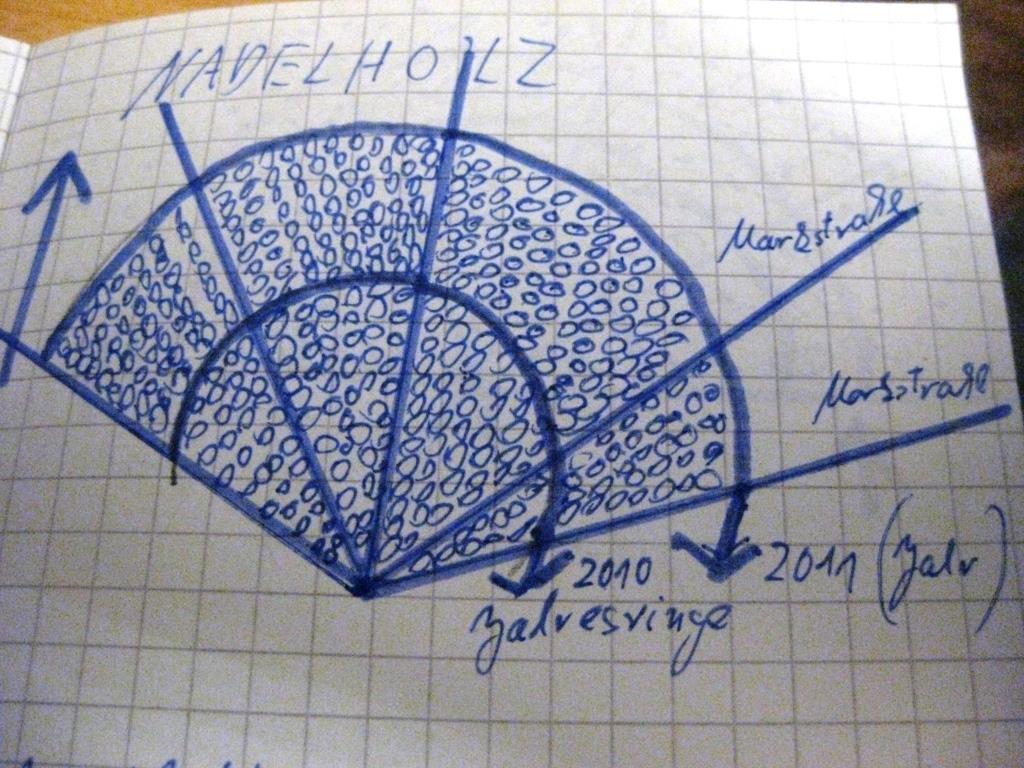 NADELHOLZ
Markstrahl
Markstrahl
2010
2011 (Jahr)
Jahresringe